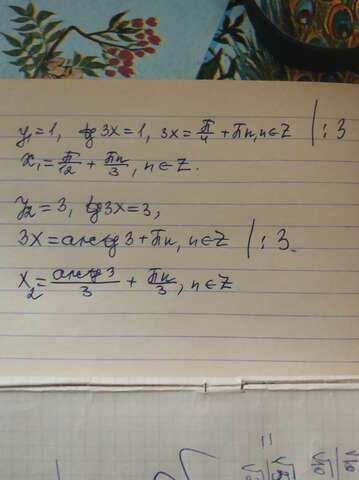 y₁=1, tg3x=1, 3x=π/4+πn, n∈Z |:3
x₁=π/12+πn/3, n∈Z.
y₂=3, tg3x=3,
3x=arctg3+πn, n∈Z |:3
x₂=arctg3/3+πn/3, n∈Z